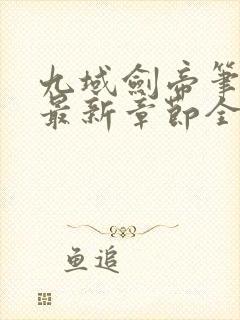 九域劍帝筆
最新章節全
鱼追